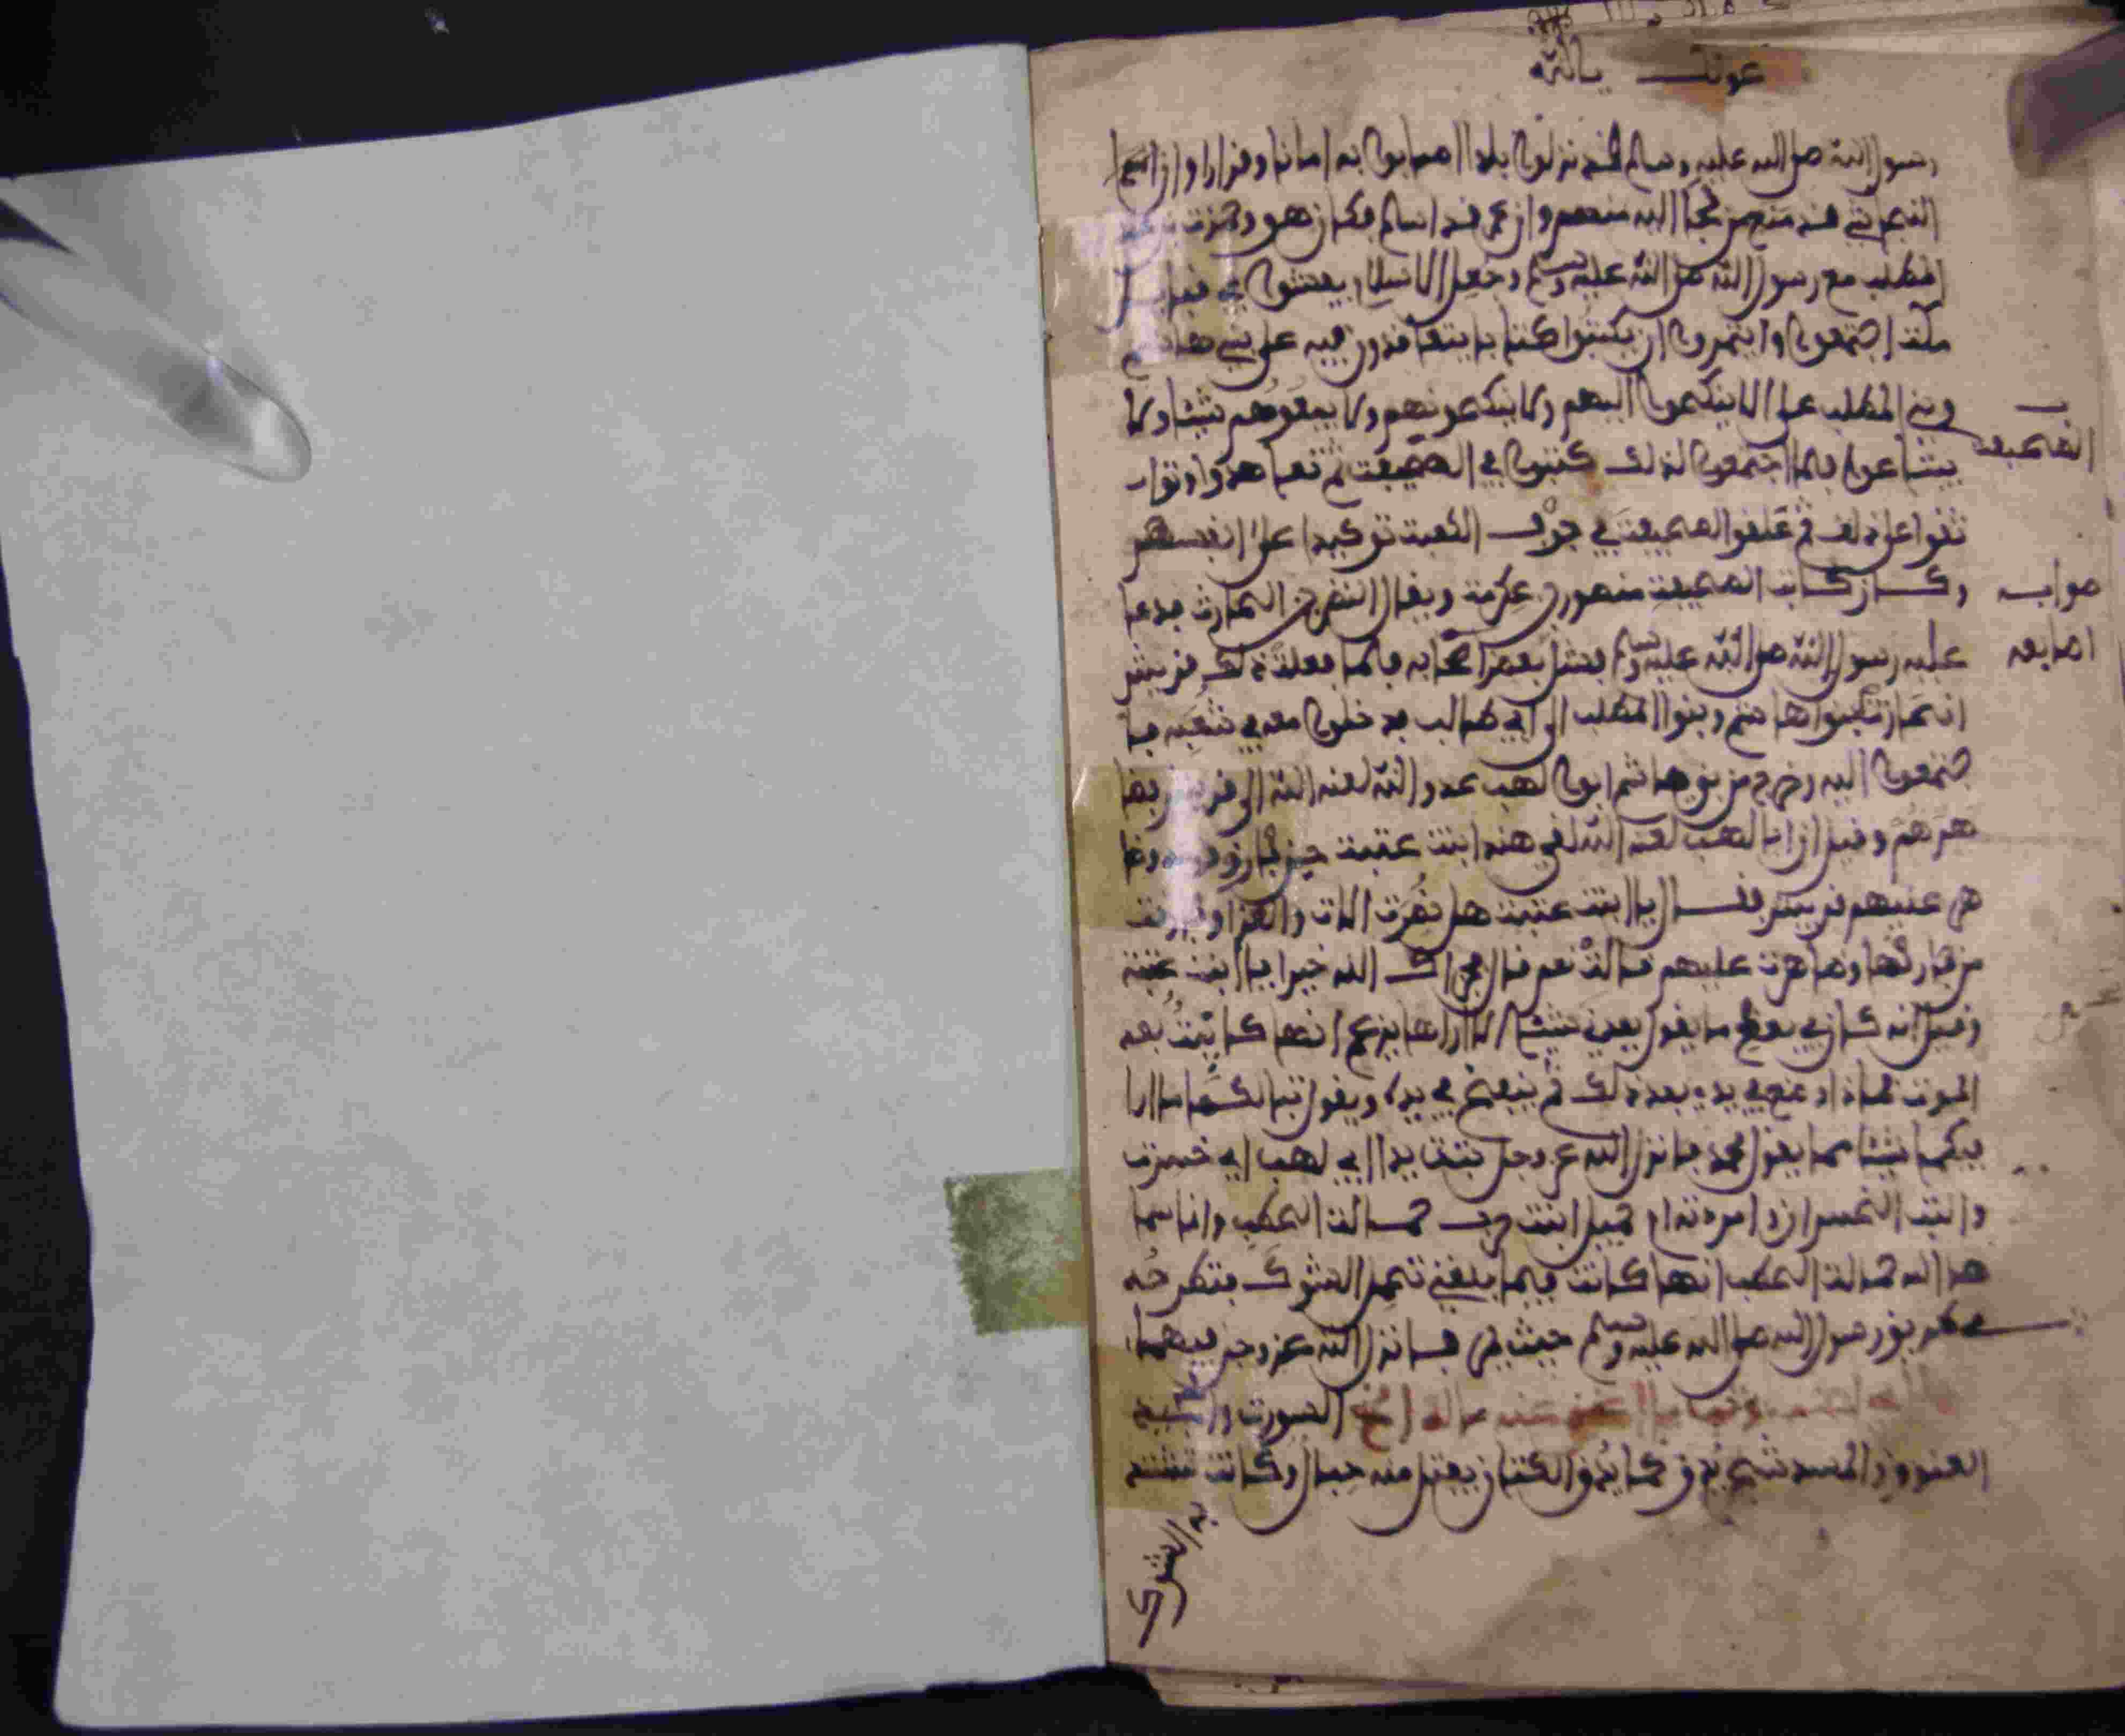 عونك يا الله
رسول الله صلى الله عليه وسلم قد نزلوا بلدا اصابوا به امانا وقرارا وان
النجاشي قد منع من لجا اليه منهم وان عمر قد اسلم فكان هو وحمزة بن عبد
المطلب مع رسول الله صلى الله عليه وسلم وجعل الاسلام يفشوا في قبايل
مكة اجتمعوا وايتمروا ان يكتبوا كتابا يتعاقدون فيه على بني هاشم
وبني المطلب على الا ينكحوا اليهم ولا ينكحونهم ولا يبيعوهم شيئا ولا
يبتاعوا فلما اجتمعوا لذلك كتبوا في الصحيفة ثم تعاهدوا وتوا
ثقوا على ذلك ثم علقوا الصحيفة في جوف الكعبة توكيدا على انفسهم
وكان كاتب الصحيفة منصور بن عكرمة ويقال النضر بن الحارث فدعا
عليه رسول الله صلى الله عليه وسلم فشل بعض اصحابه فلما فعلت ذلك قريش
انحازت بنوا هاشم وبنوا المطلب الى ابي طالب فدخلوا معه في شعبه فا
جتمعوا اليه وخرج من بني هاشم ابوا لهب عدو الله لعنه الله الى قريش فظا
هرهم وقيل ان ابا لهب لعنه الله لقي هند ابنت عتبة حين فارق قومه وظا
هر عليهم قريش فقال يا ابنت عتبة هل نصرت اللات والعزا وفارقت
من فارقها وظاهرت عليهم قالت نعم قال فجزاك الله خيرا يا ابنت عتبة
وقيل انه كان في بعض ما يقول يعدني اشياء لا اراها يزعم انها كاينة بعد
الموت فماذا وضع في يدي بعد ذلك ثم ينفخ في يديه ويقول تبا لكما ما ارا
فيكما شيئا مما يقول محمد فانزل الله عز وجل تبت يدا ابي لهب اي خسرت
والتب الخسران وامرته ام جميل ابنت حرب حمالة الحطب وانما سما
ها الله حمالة الحطب انها كانت فيما بلغني تحمل الشوك فتطرحه
على طريق رسول الله صلى الله عليه وسلم حيث يمر فانزل الله عز وجل فيهما
تبت يدا ابي لهب وتب ما اغنى عنه ماله الخ السورة والجيد
العنق والمسد شجر يدق كما يدق الكتان يفتل منه حبال وكانت
به الشوك
الصحيفة
صواب
اصابعه